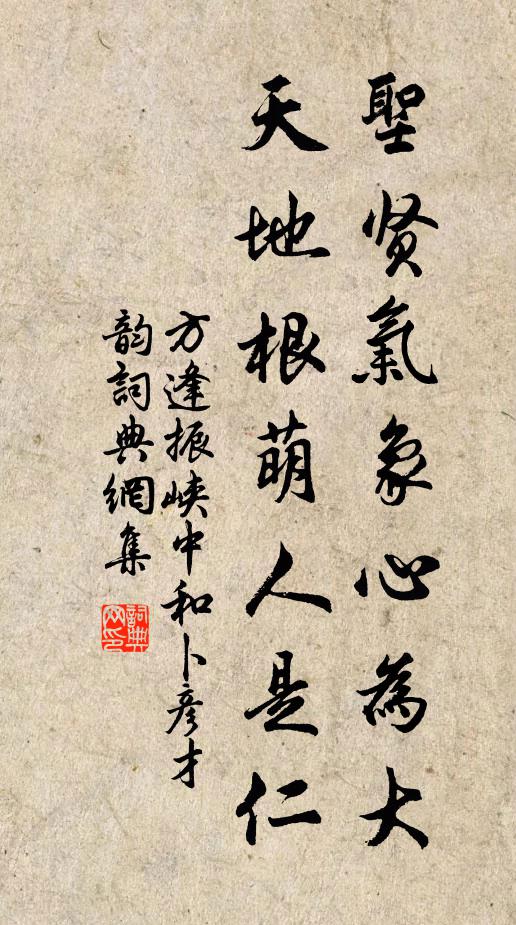 聖贤氣象心為大
天地根萌人是仁
方逢振峽中和卜彦才
韵詞典網集
詞典网印